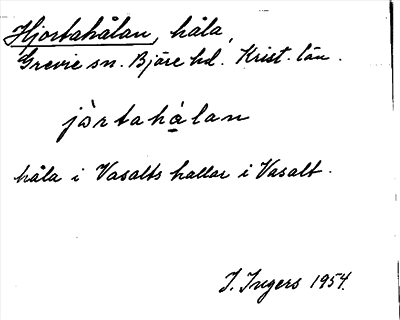 Hjortahålan, håla,
Grevie sn. Bjäre hd. Krist. län.
jò̀rtahå̀lan
håla i Vasalts hallar i Vasalt.
I. Ingers 1954.